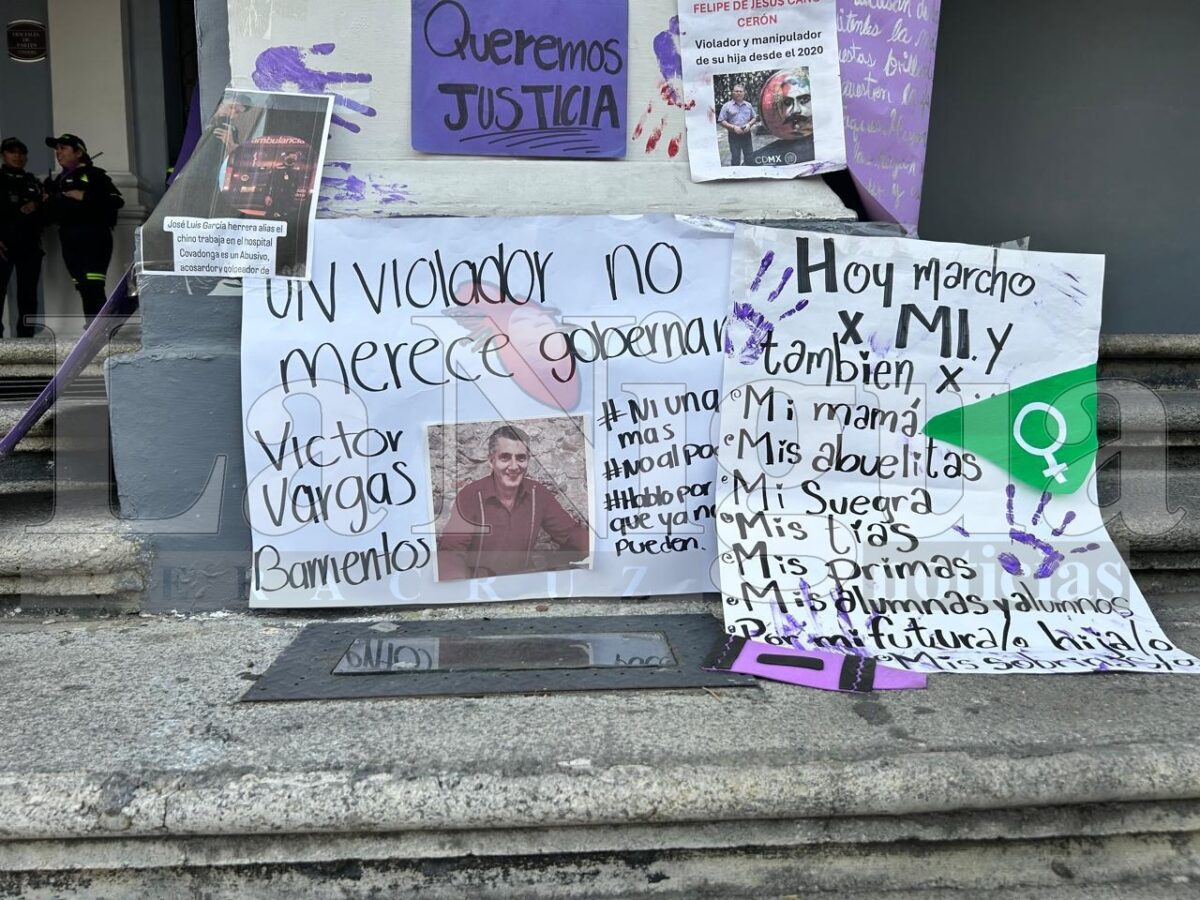 OFICIALÍA
DE
PARTES
Queremos
JUSTICIA
FELIPE DE JESÚS CANO
CERÓN
Violador y manipulador
de su hija desde el 2020
CDMX
ambulancia
José Luis García herrera alias el
chino trabaja en el hospital
Covadonga es un Abusivo,
acosardory golpeador de
UN Violador no
merece gobernar
Victor
Vargas
Barrientos
#Ni una
mas
#No al pa
#Hablo por
que ya no
pueden.
Hoy marcho
x MI. y
también x...
Mi mamá
Mis abuelitas
Mi Suegra
Mis tías
Mis primas
Mis alumnas y alumnos
Por mi futura/o hija/o
Mis sobrinas/o
La Nigua
VERACRUZ
noticias